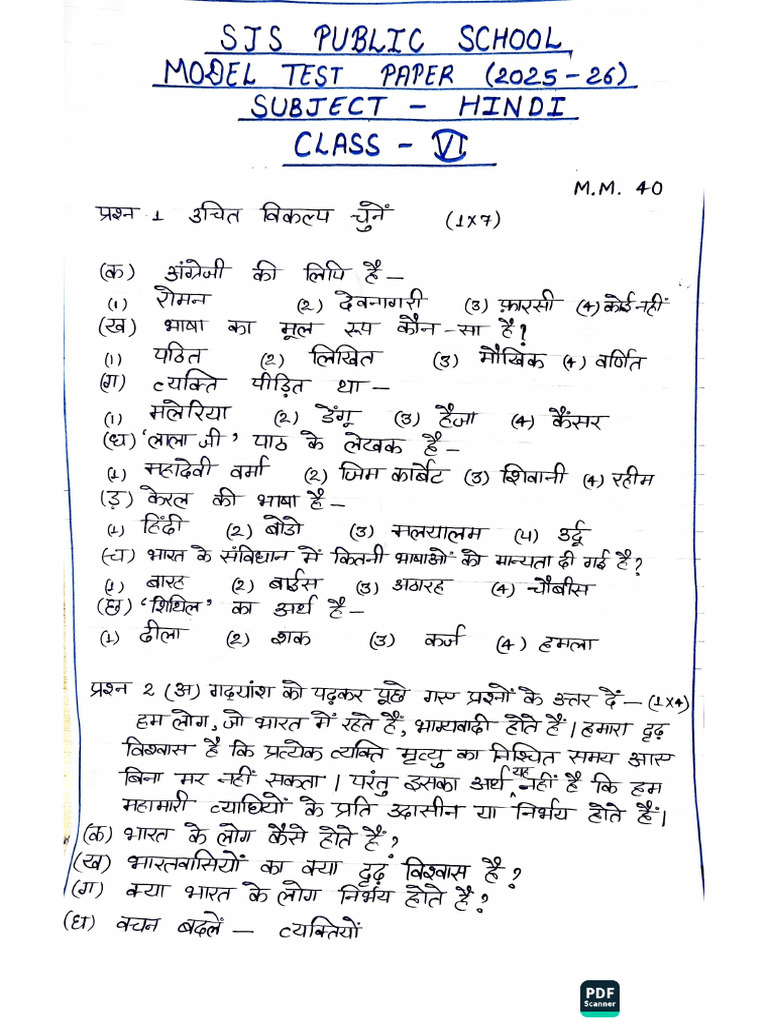 SJS PUBLIC SCHOOL
MODEL TEST PAPER (2025-26)
SUBJECT - HINDI
CLASS - VI
M.M. 40
प्रश्न 1 उचित विकल्प चुनें (1x7)
(क) अंग्रेजी की लिपि है –
(1) रोमन (2) देवनागरी (3) फ़ारसी (4) कोई नहीं
(ख) भाषा का मूल रूप कौन-सा है?
(1) पठित (2) लिखित (3) मौखिक (4) वर्णित
(ग) व्यक्ति पीड़ित था –
(1) मलेरिया (2) डेंगू (3) हैजा (4) कैंसर
(घ) 'लाला जी' पाठ के लेखक है –
(1) महादेवी वर्मा (2) जिम कार्बेट (3) शिवानी (4) रहीम
(ड़) केरल की भाषा है –
(1) हिंदी (2) बोडो (3) मलयालम (4) उर्दू
(च) भारत के संविधान में कितनी भाषाओं को मान्यता दी गई है?
(1) बारह (2) बाईस (3) अठारह (4) चौबीस
(छ) 'शिथिल' का अर्थ है –
(1) ढीला (2) शक (3) कर्ज (4) हमला
प्रश्न 2 (अ) गद्यांश को पढ़कर पूछे गए प्रश्नों के उत्तर दें – (1x4)
हम लोग, जो भारत में रहते हैं, भाग्यवादी होते हैं। हमारा दृढ़
विश्वास है कि प्रत्येक व्यक्ति मृत्यु का निश्चित समय आए
बिना मर नहीं सकता। परंतु इसका अर्थ यह नहीं है कि हम
महामारी व्याधियों के प्रति उदासीन या निर्भय होते हैं।
(क) भारत के लोग कैसे होते हैं?
(ख) भारतवासियों का क्या दृढ़ विश्वास है?
(ग) क्या भारत के लोग निर्भय होते है?
(घ) वचन बदलें – व्यक्तियों
PDF
Scanner